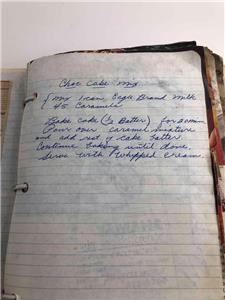 Choc Cake Mix
{ Mix 1 can Eagle Brand Milk
45 Caramels
Bake cake (½ Batter) for 20 min
Pour over caramel mixture
and add rest of cake batter
Continue baking until done.
Serve with Whipped Cream.